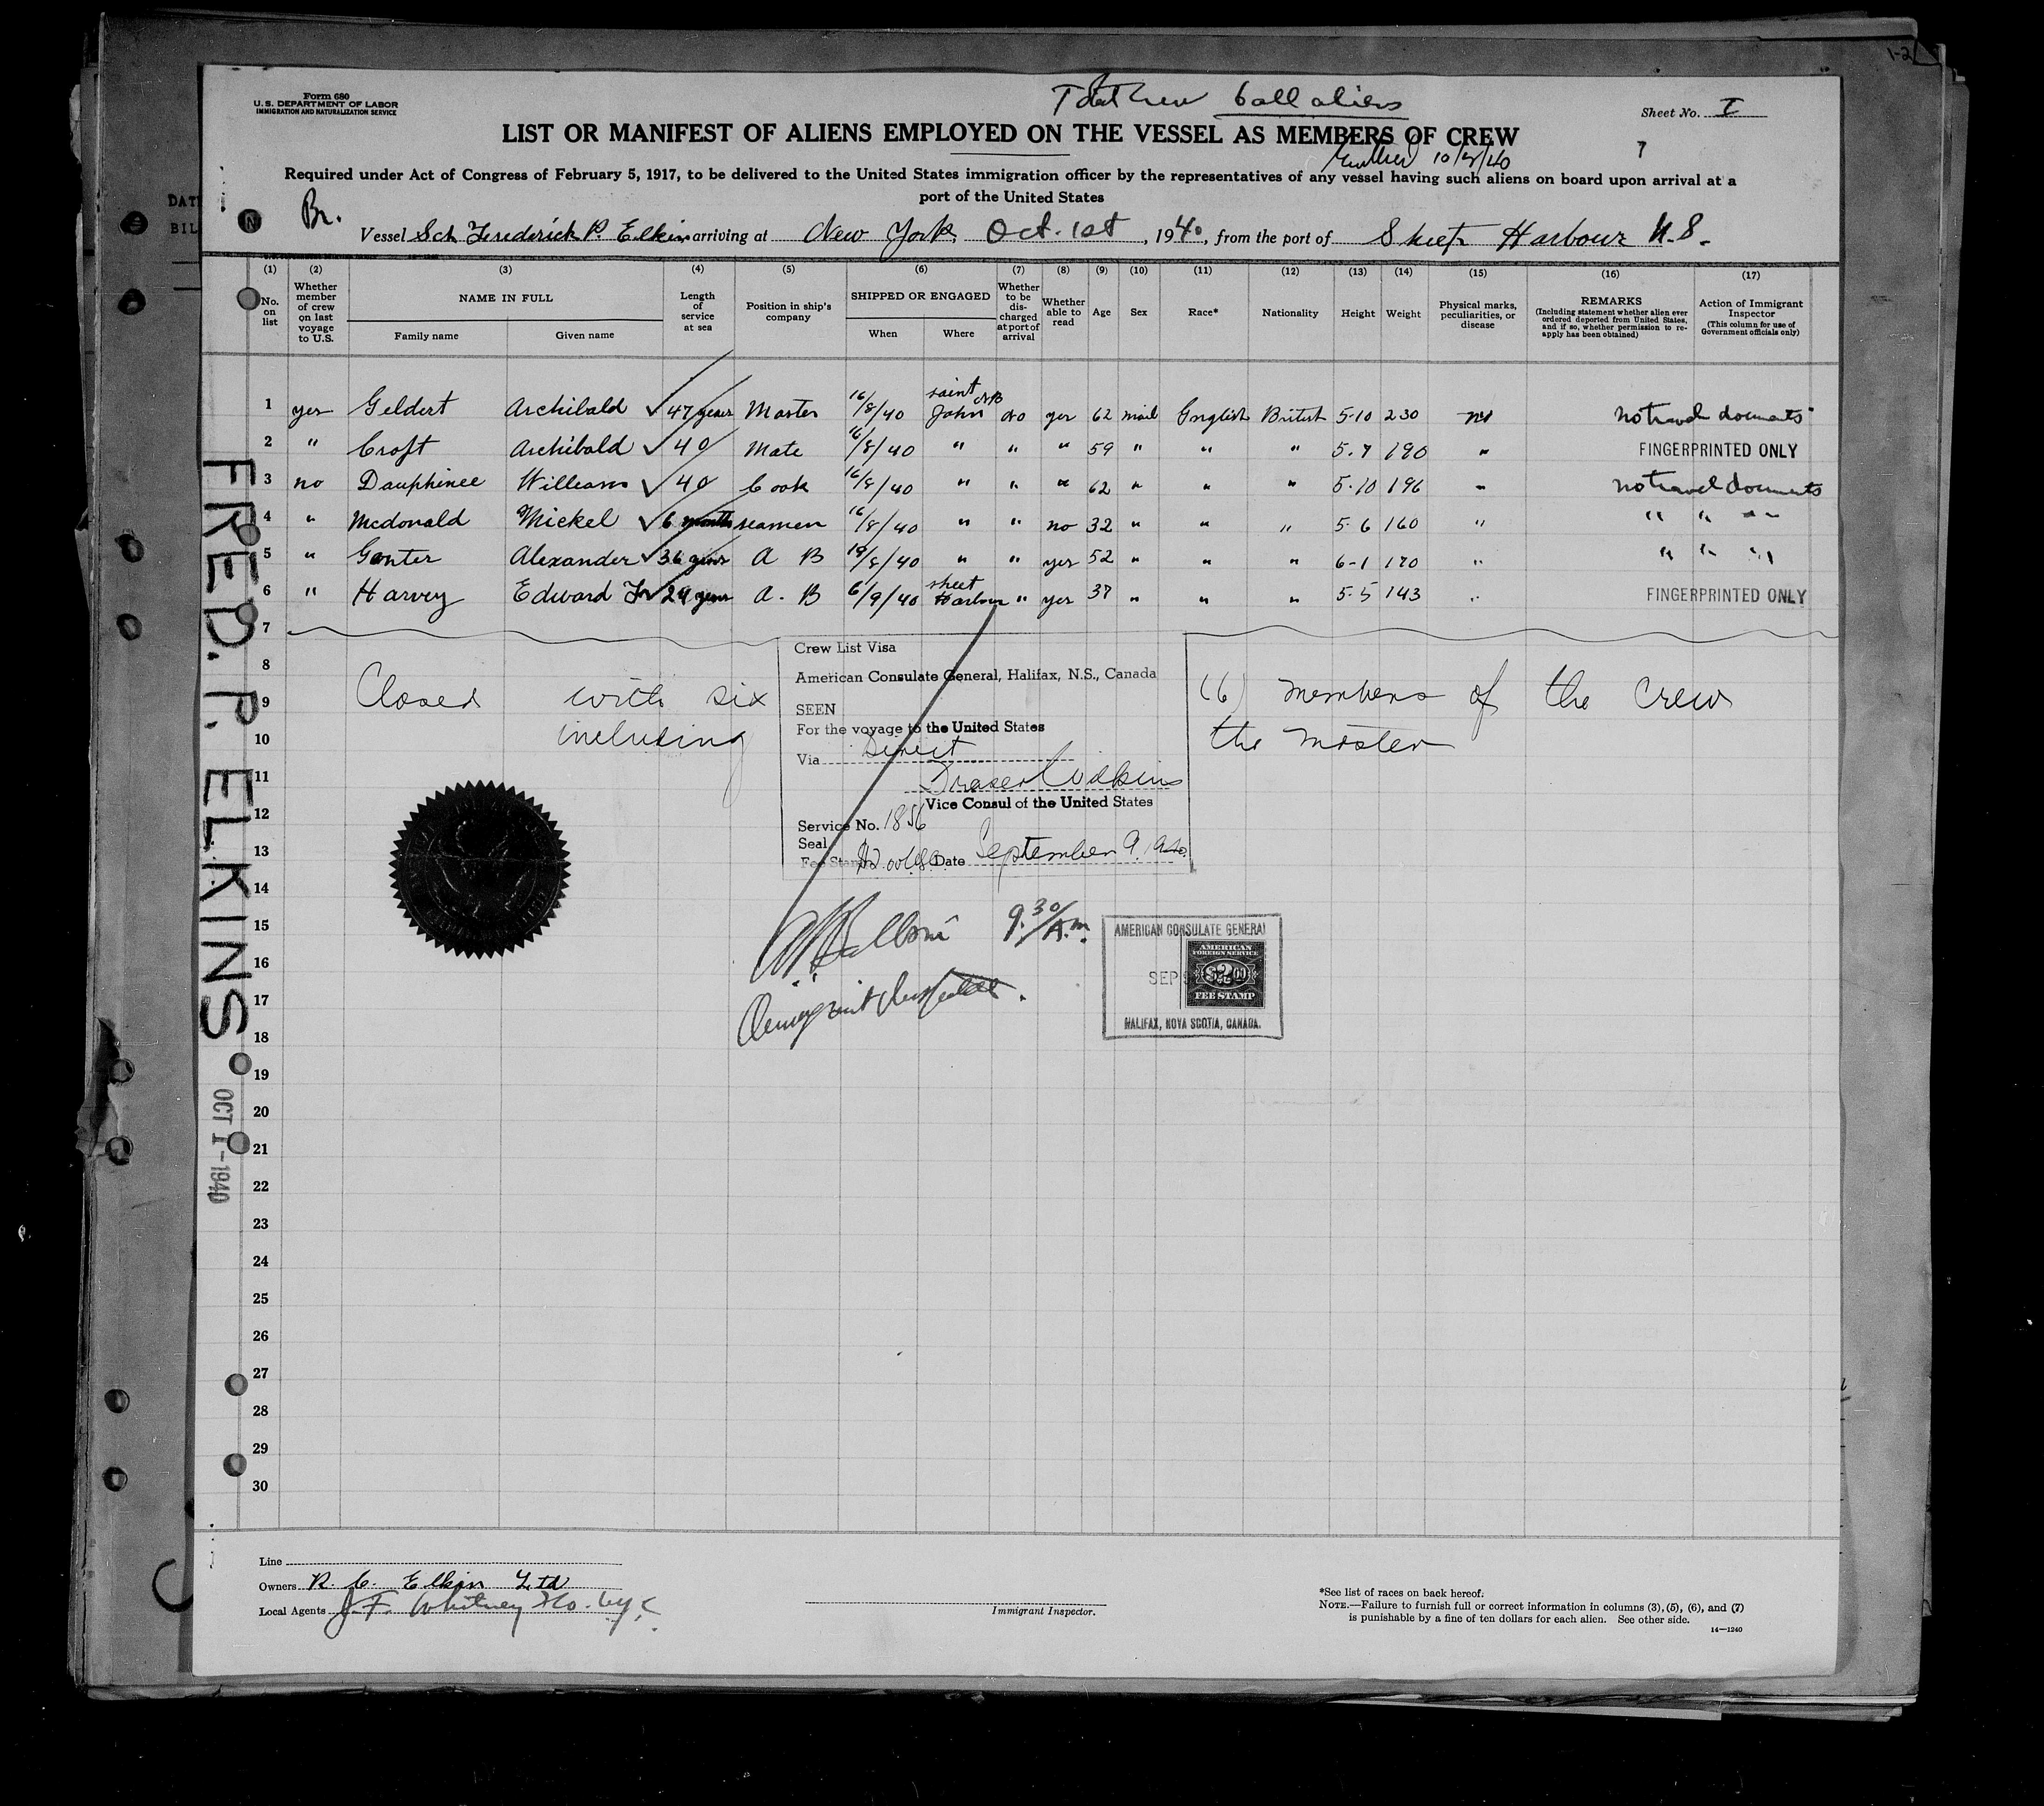 1-2
Form 680
U.S. DEPARTMENT OF LABOR
IMMIGRATION AND NATURALIZATION SERVICE
Total Crew 6 all aliens
Sheet No. I
LIST OR MANIFEST OF ALIENS EMPLOYED ON THE VESSEL AS MEMBERS OF CREW
10/2/40
Required under Act of Congress of February 5, 1917, to be delivered to the United States immigration officer by the representatives of any vessel having such aliens on board upon arrival at a
port of the United States
DAT
BIL
Br.
Vessel Sch Frederick P. Elkin arriving at New York Oct. 1st, 1940, from the port of Sheet Harbour N.S.
(1) (2) (3) (4) (5) (6) (7) (8) (9) (10) (11) (12) (13) (14) (15) (16) (17)
No. on list
Whether member of crew on last voyage to U.S.
NAME IN FULL
Family name Given name
Length of service at sea
Position in ship's company
SHIPPED OR ENGAGED
When Where
Whether to be discharged at port of arrival
Whether able to read
Age Sex Race* Nationality Height Weight
Physical marks, peculiarities, or disease
REMARKS
(Including statement whether alien ever ordered deported from United States, and if so, whether permission to reapply has been obtained)
Action of Immigrant Inspector
(This column for use of Government officials only)
1 yes Geldert Archibald 47 years Master 16/8/40 saint John NB no yes 62 mail English British 5-10 230 no no travel documents
2 " Croft Archibald 40 Mate 16/8/40 " " " 59 " " " 5.7 190 " FINGERPRINTED ONLY
3 no Dauphinee William 40 Cook 16/8/40 " " " 62 " " " 5-10 196 " no travel documents
4 " Mcdonald Mickel 6 months seamen 16/8/40 " " no 32 " " " 5-6 160 " " " "
5 " Genter Alexander 36 years A B 19/8/40 " " yes 52 " " " 6-1 170 " " " "
6 " Harvey Edward 24 years A. B 6/9/40 sheet Harbour " yes 37 " " " 5-5 143 " FINGERPRINTED ONLY
7
8
9
10
11
12
13
14
15
16
17
18
19
20
21
22
23
24
25
26
27
28
29
30
Closed with six (6) members of the crew
including the master
Crew List Visa
American Consulate General, Halifax, N.S., Canada
SEEN
For the voyage to the United States
Via Direct
Vice Consul of the United States
Service No. 1856
Seal
Fee Stamp $2.00 Date September 9, 1940
9.30 A.m.
AMERICAN CONSULATE GENERAL
SEP 9
AMERICAN
FOREIGN SERVICE
$2.00
FEE STAMP
HALIFAX, NOVA SCOTIA, CANADA.
FRED. P. ELKINS
OCT 1-1940
Line
Owners R. C. Elkin Ltd
Local Agents J. F. Whitney & Co.
Immigrant Inspector.
*See list of races on back hereof.
NOTE.—Failure to furnish full or correct information in columns (3), (5), (6), and (7)
is punishable by a fine of ten dollars for each alien. See other side.
14—1240